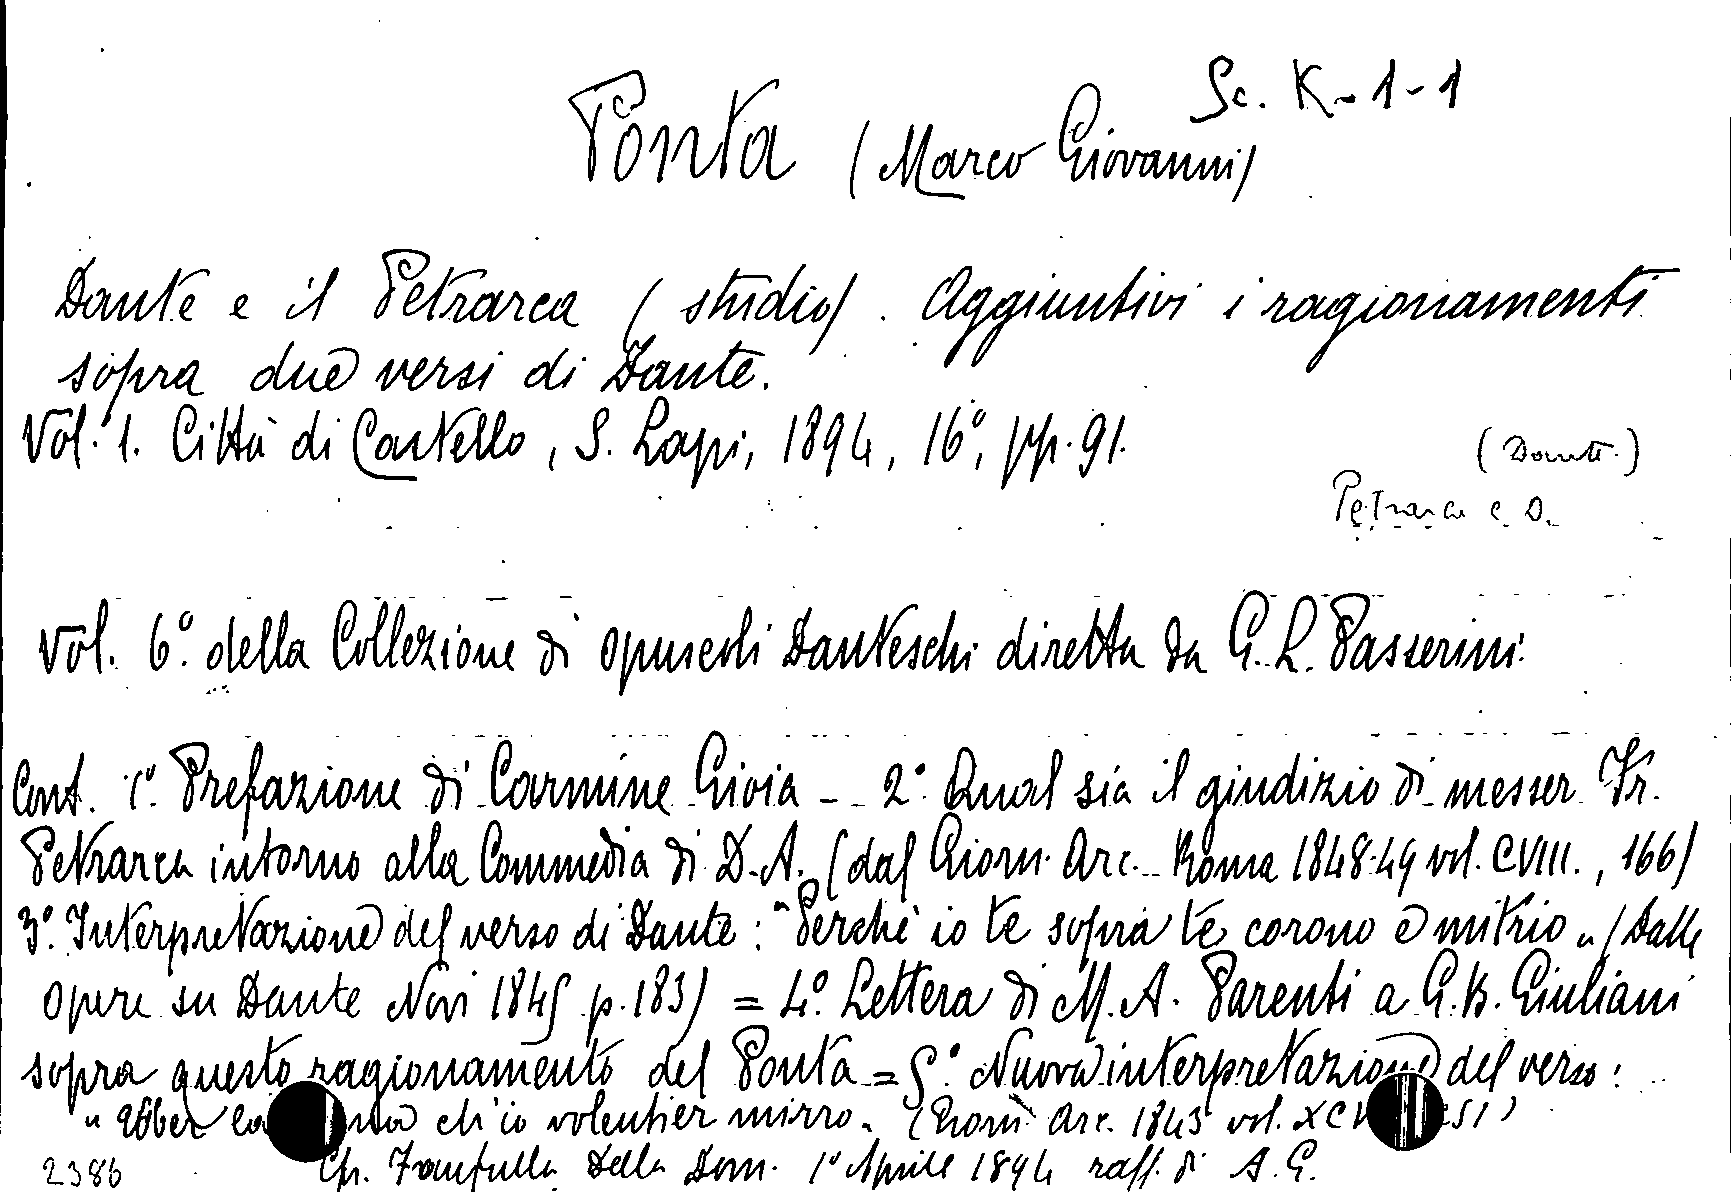 Sc. K-1-1
Ponta (Marco Giovanni)
Dante e il Petrarca (studio). Aggiuntivi i ragionamenti
sopra due versi di Dante.
Vol. 1. Città di Castello, S. Lapi, 1894, 16°, pp. 91.
(Dante.)
Petrarca e D.
Vol. 6°. della Collezione di opuscoli Danteschi diretta da G. L. Passerini.
Cont. 1°. Prefazione di Carmine Gioia - 2°. Qual sia il giudizio di messer Fr.
Petrarca intorno alla Commedia di D. A. (dal Giorn. Arc. Roma 1848-49 vol. CVIII., 166)
3°. Interpretazione del verso di Dante: "Perchè io te sopra te corono e mitrio" (Dalle
opere su Dante Novi 1845 p. 183) = 4°. Lettera di M. A. Parenti a G. B. Giuliani
sopra questo ragionamento del Ponta = 5°. Nuova interpretazione del verso:
"Ebber la ch'io volentier mirro. (Giorn. Arc. 1843 vol.
2386 Cfr. Fanfulla della Dom. 1° Aprile 1894 raff. di A. G.